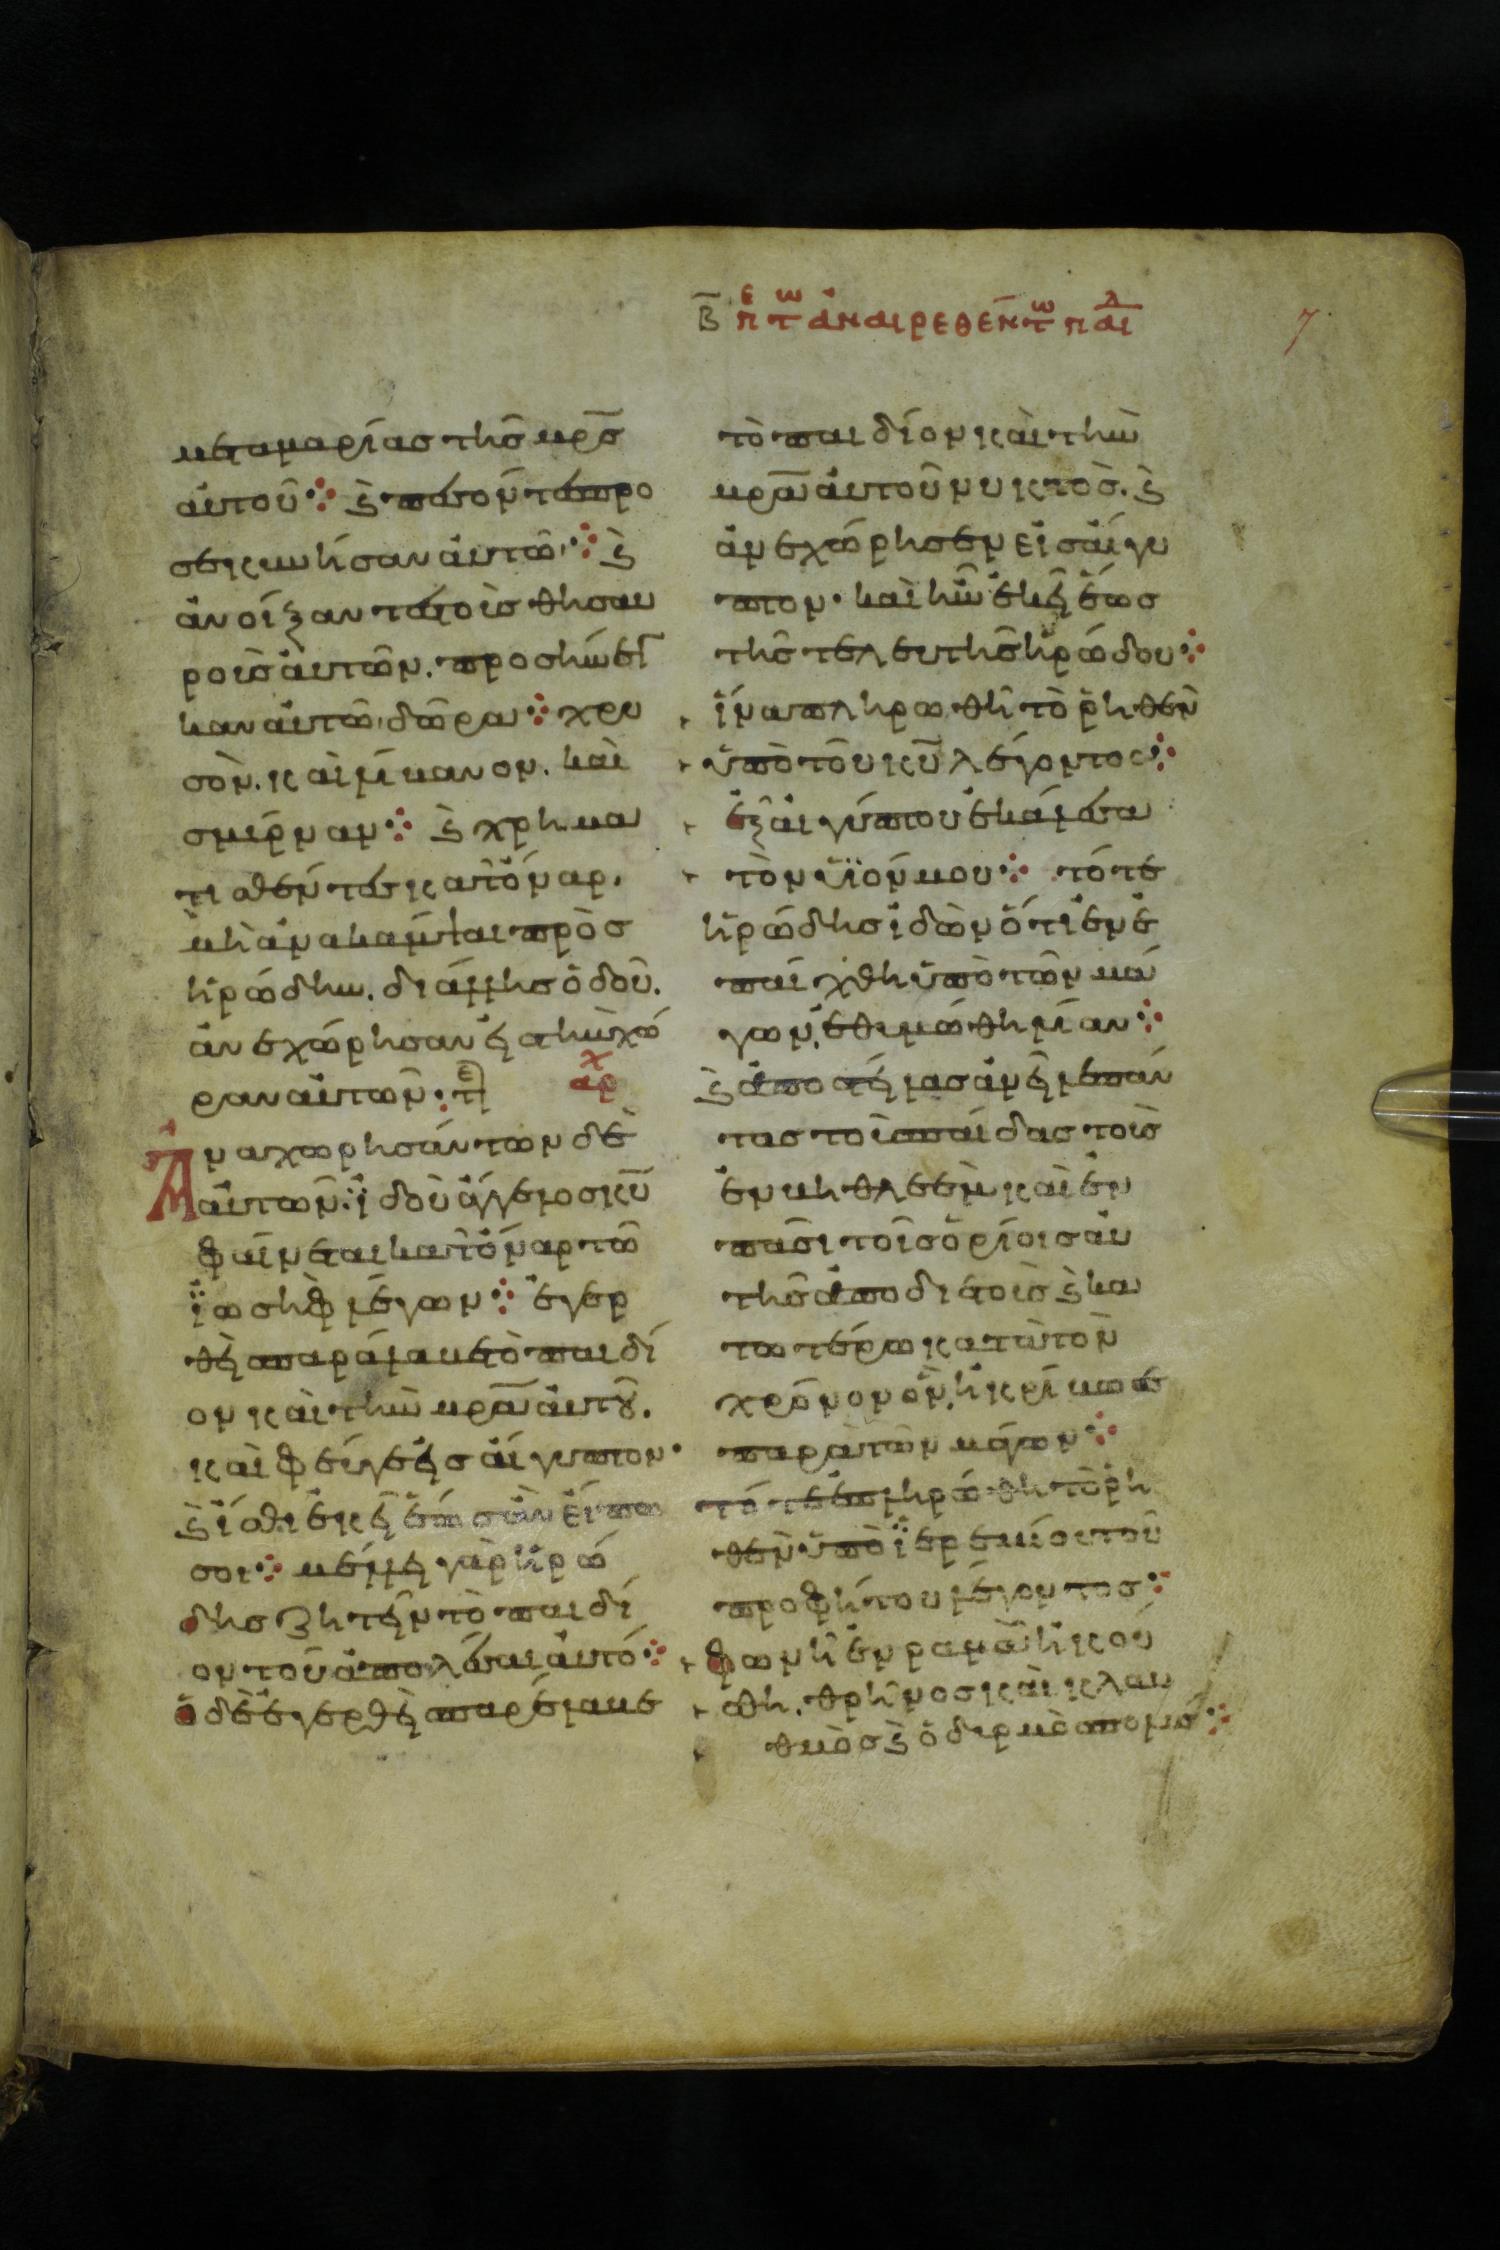 Β̅ πε τω ἀναιρεθέντω παιδ
7
μετα μαρίας τῆς μρ̅ς
αὐτοῦ ⁘ ϗ πεσόντες προ
σεκύνησαν αὐτῶ ⁘ ϗ
ἀνοίξαντες τοὺς θησαυ
ροὺς αὐτῶν. προσήνεγ
καν αὐτῶ δῶρα ⁘ χρυ
σὸν. καὶ λίβανον. καὶ
σμύρναν ⁘ ϗ χρημα
τισθέντες κατ' ὄναρ.
μὴ ἀνακάμψαι πρὸς
ἡρώδην. δι ἄλλης ὁδοῦ.
ἀνεχώρησαν εἰς τὴν χώ
ραν αὐτῶν · τε αρχ
Ἀναχωρησάντων δὲ
αὐτῶν · ἰδοὺ ἄγγελος κ̅υ
φαίνεται κατ' ὄναρ τῶ
ἰωσὴφ λέγων ⁘ ἐγερ
θεὶς παράλαβε τὸ παιδί
ον καὶ τὴν μρ̅α αὐτοῦ.
καὶ φεῦγε εἰς αἴγυπτον ·
ϗ ἴσθι ἐκεῖ ἕως ἂν εἴπω
σοι ⁘ μέλλει γὰρ ἡρώ
δης ζητεῖν τὸ παιδί
ον τοῦ ἀπολέσαι αὐτό ⁘
ὁ δὲ ἐγερθεὶς παρέλαβε
τὸ παιδίον καὶ τὴν
μρ̅α αὐτοῦ νυκτὸς. ϗ
ἀνεχώρησεν εἰς αἴγυ
πτον · καὶ ἦν ἐκεῖ ἕως
τῆς τελευτῆς ἡρώδου ⁘
ἵνα πληρωθῆ τὸ ῥηθὲν
ὑπὸ τοῦ κ̅υ λέγοντος ⁘
ἐξ αἰγύπτου ἐκάλεσα
τὸν υἱόν μου ⁘ τότε
ἡρώδης ἰδὼν ὅτι ἐνε
παίχθη ὑπὸ τῶν μά
γων, ἐθυμώθη λίαν ⁘
ϗ ἀποστείλας ἀνεῖλε πάν
τας τοὺς παῖδας τοὺς
ἐν βηθλεὲμ καὶ ἐν
πᾶσι τοῖς ὁρίοις αὐ
τῆς ἀπὸ διετοῦς ϗ κα
τωτέρω κατὰ τὸν
χρόνον ὃν, ἠκρίβωσε
παρὰ τῶν μάγων ⁘
τότε ἐπληρώθη τὸ ῥη
θὲν ὑπὸ ἱερεμίου τοῦ
προφήτου λέγοντος ⁘
φωνὴ ἐν ραμὰ ἠκού
σθη. θρῆνος καὶ κλαυ
θμὸς ϗ ὀδυρμὸς πολύς ⁘